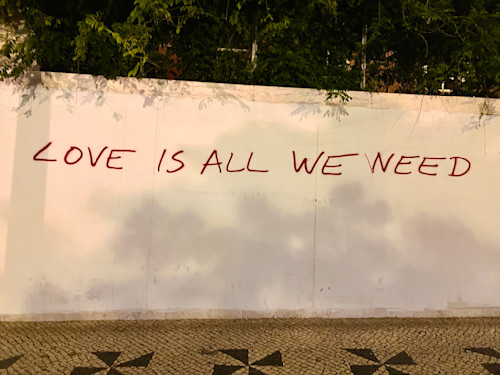 LOVE IS ALL WE NEED